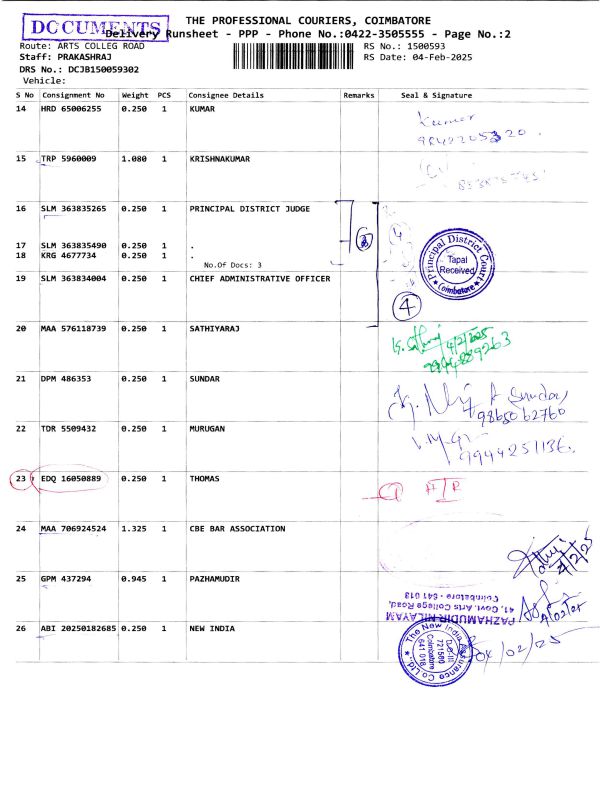 DOCUMENTS
THE PROFESSIONAL COURIERS, COIMBATORE
Delivery Runsheet - PPP - Phone No.:0422-3505555 - Page No.:2
Route: ARTS COLLEG ROAD
RS No.: 1500593
Staff: PRAKASHRAJ
RS Date: 04-Feb-2025
DRS No.: DCJB150059302
Vehicle:
S No Consignment No Weight PCS Consignee Details Remarks Seal & Signature
14 HRD 65006255 0.250 1 KUMAR
Kumar
15 TRP 5960009 1.080 1 KRISHNAKUMAR
16 SLM 363835265 0.250 1 PRINCIPAL DISTRICT JUDGE
17 SLM 363835490 0.250 1 .
18 KRG 4677734 0.250 1 .
No.Of Docs: 3
3
Principal District Court
Tapal
Received
Coimbatore
19 SLM 363834004 0.250 1 CHIEF ADMINISTRATIVE OFFICER
4
20 MAA 576118739 0.250 1 SATHIYARAJ
4/2/2025
21 DPM 486353 0.250 1 SUNDAR
9865062760
22 TDR 5509432 0.250 1 MURUGAN
9944251136
23 EDQ 16050889 0.250 1 THOMAS
24 MAA 706924524 1.325 1 CBE BAR ASSOCIATION
25 GPM 437294 0.945 1 PAZHAMUDIR
PAZHAMUDIR NILAYAM
41, Govt. Arts College Road,
Coimbatore - 641 018
26 ABI 20250182685 0.250 1 NEW INDIA
The New India Assurance Co. Ltd.
721500
Coimbatore
641 018
04/02/25